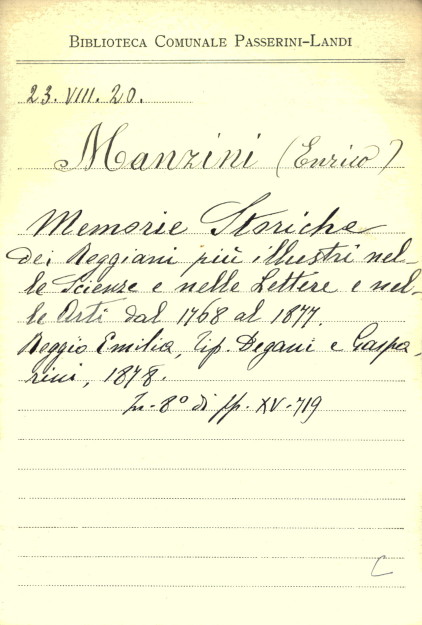 BIBLIOTECA COMUNALE PASSERINI-LANDI
23. VIII. 20.
Manzini (Enrico)
Memorie Storiche
dei Reggiani più illustri nel-
le Scienze e nelle Lettere e nel-
le Arti dal 1768 al 1877.
Reggio Emilia, Tip. Degani e Gaspa-
rini, 1878.
In-8° di pp. XV-719
C